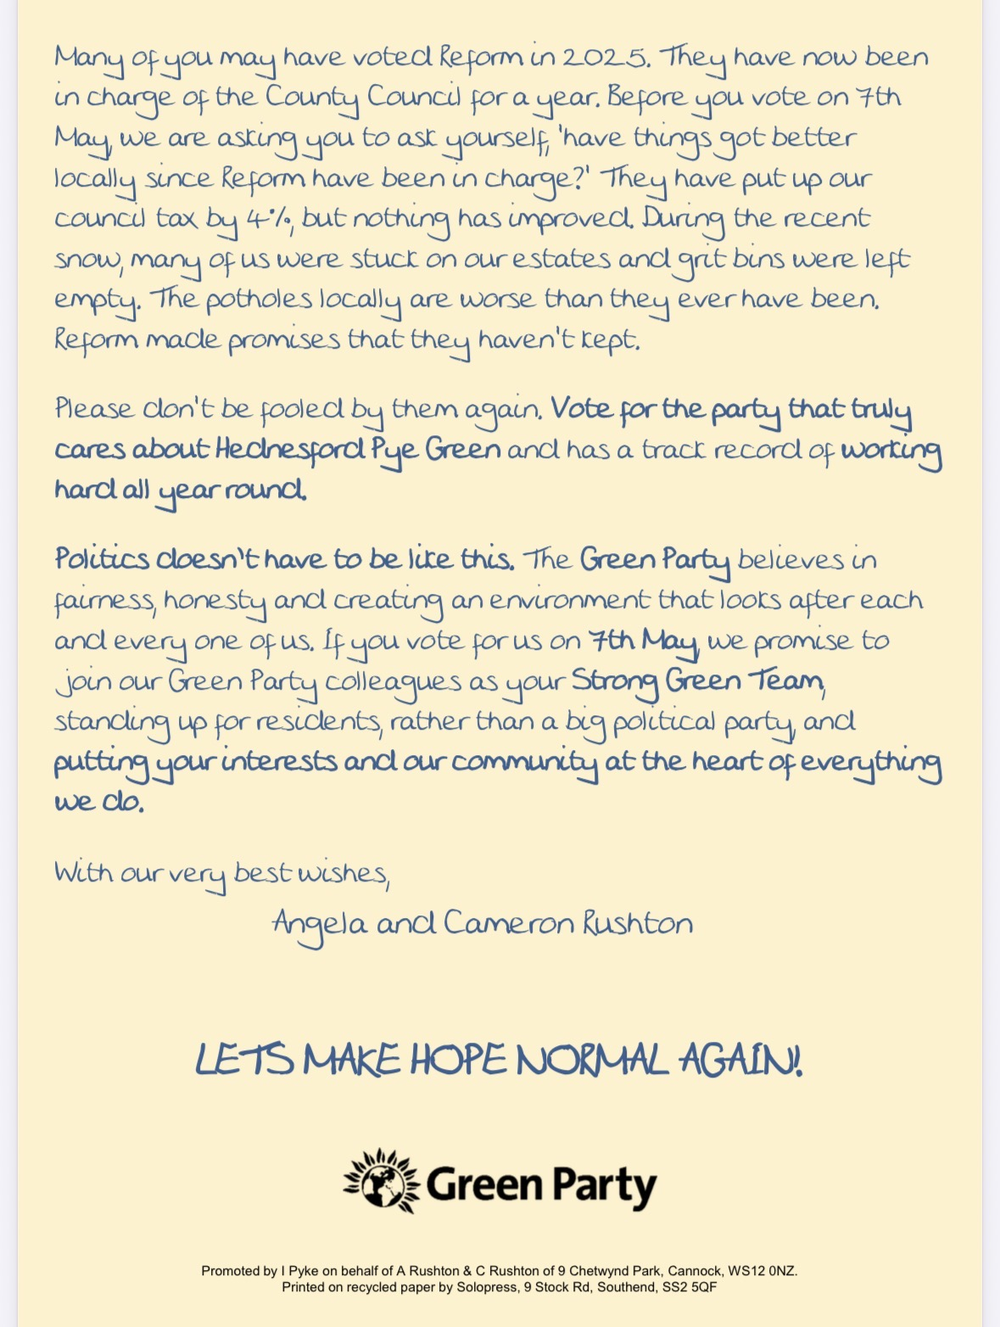 Many of you may have voted Reform in 2025. They have now been
in charge of the County Council for a year. Before you vote on 7th
May, we are asking you to ask yourself, 'have things got better
locally since Reform have been in charge?' They have put up our
council tax by 4%, but nothing has improved. During the recent
snow, many of us were stuck on our estates and grit bins were left
empty. The potholes locally are worse than they ever have been.
Reform made promises that they haven't kept.
Please don't be fooled by them again. Vote for the party that truly
cares about Hednesford Pye Green and has a track record of working
hard all year round.
Politics doesn't have to be like this. The Green Party believes in
fairness, honesty and creating an environment that looks after each
and every one of us. If you vote for us on 7th May, we promise to
join our Green Party colleagues as your Strong Green Team,
standing up for residents, rather than a big political party, and
putting your interests and our community at the heart of everything
we do.
With our very best wishes,
Angela and Cameron Rushton
LETS MAKE HOPE NORMAL AGAIN!
Green Party
Promoted by I Pyke on behalf of A Rushton & C Rushton of 9 Chetwynd Park, Cannock, WS12 0NZ.
Printed on recycled paper by Solopress, 9 Stock Rd, Southend, SS2 5QF